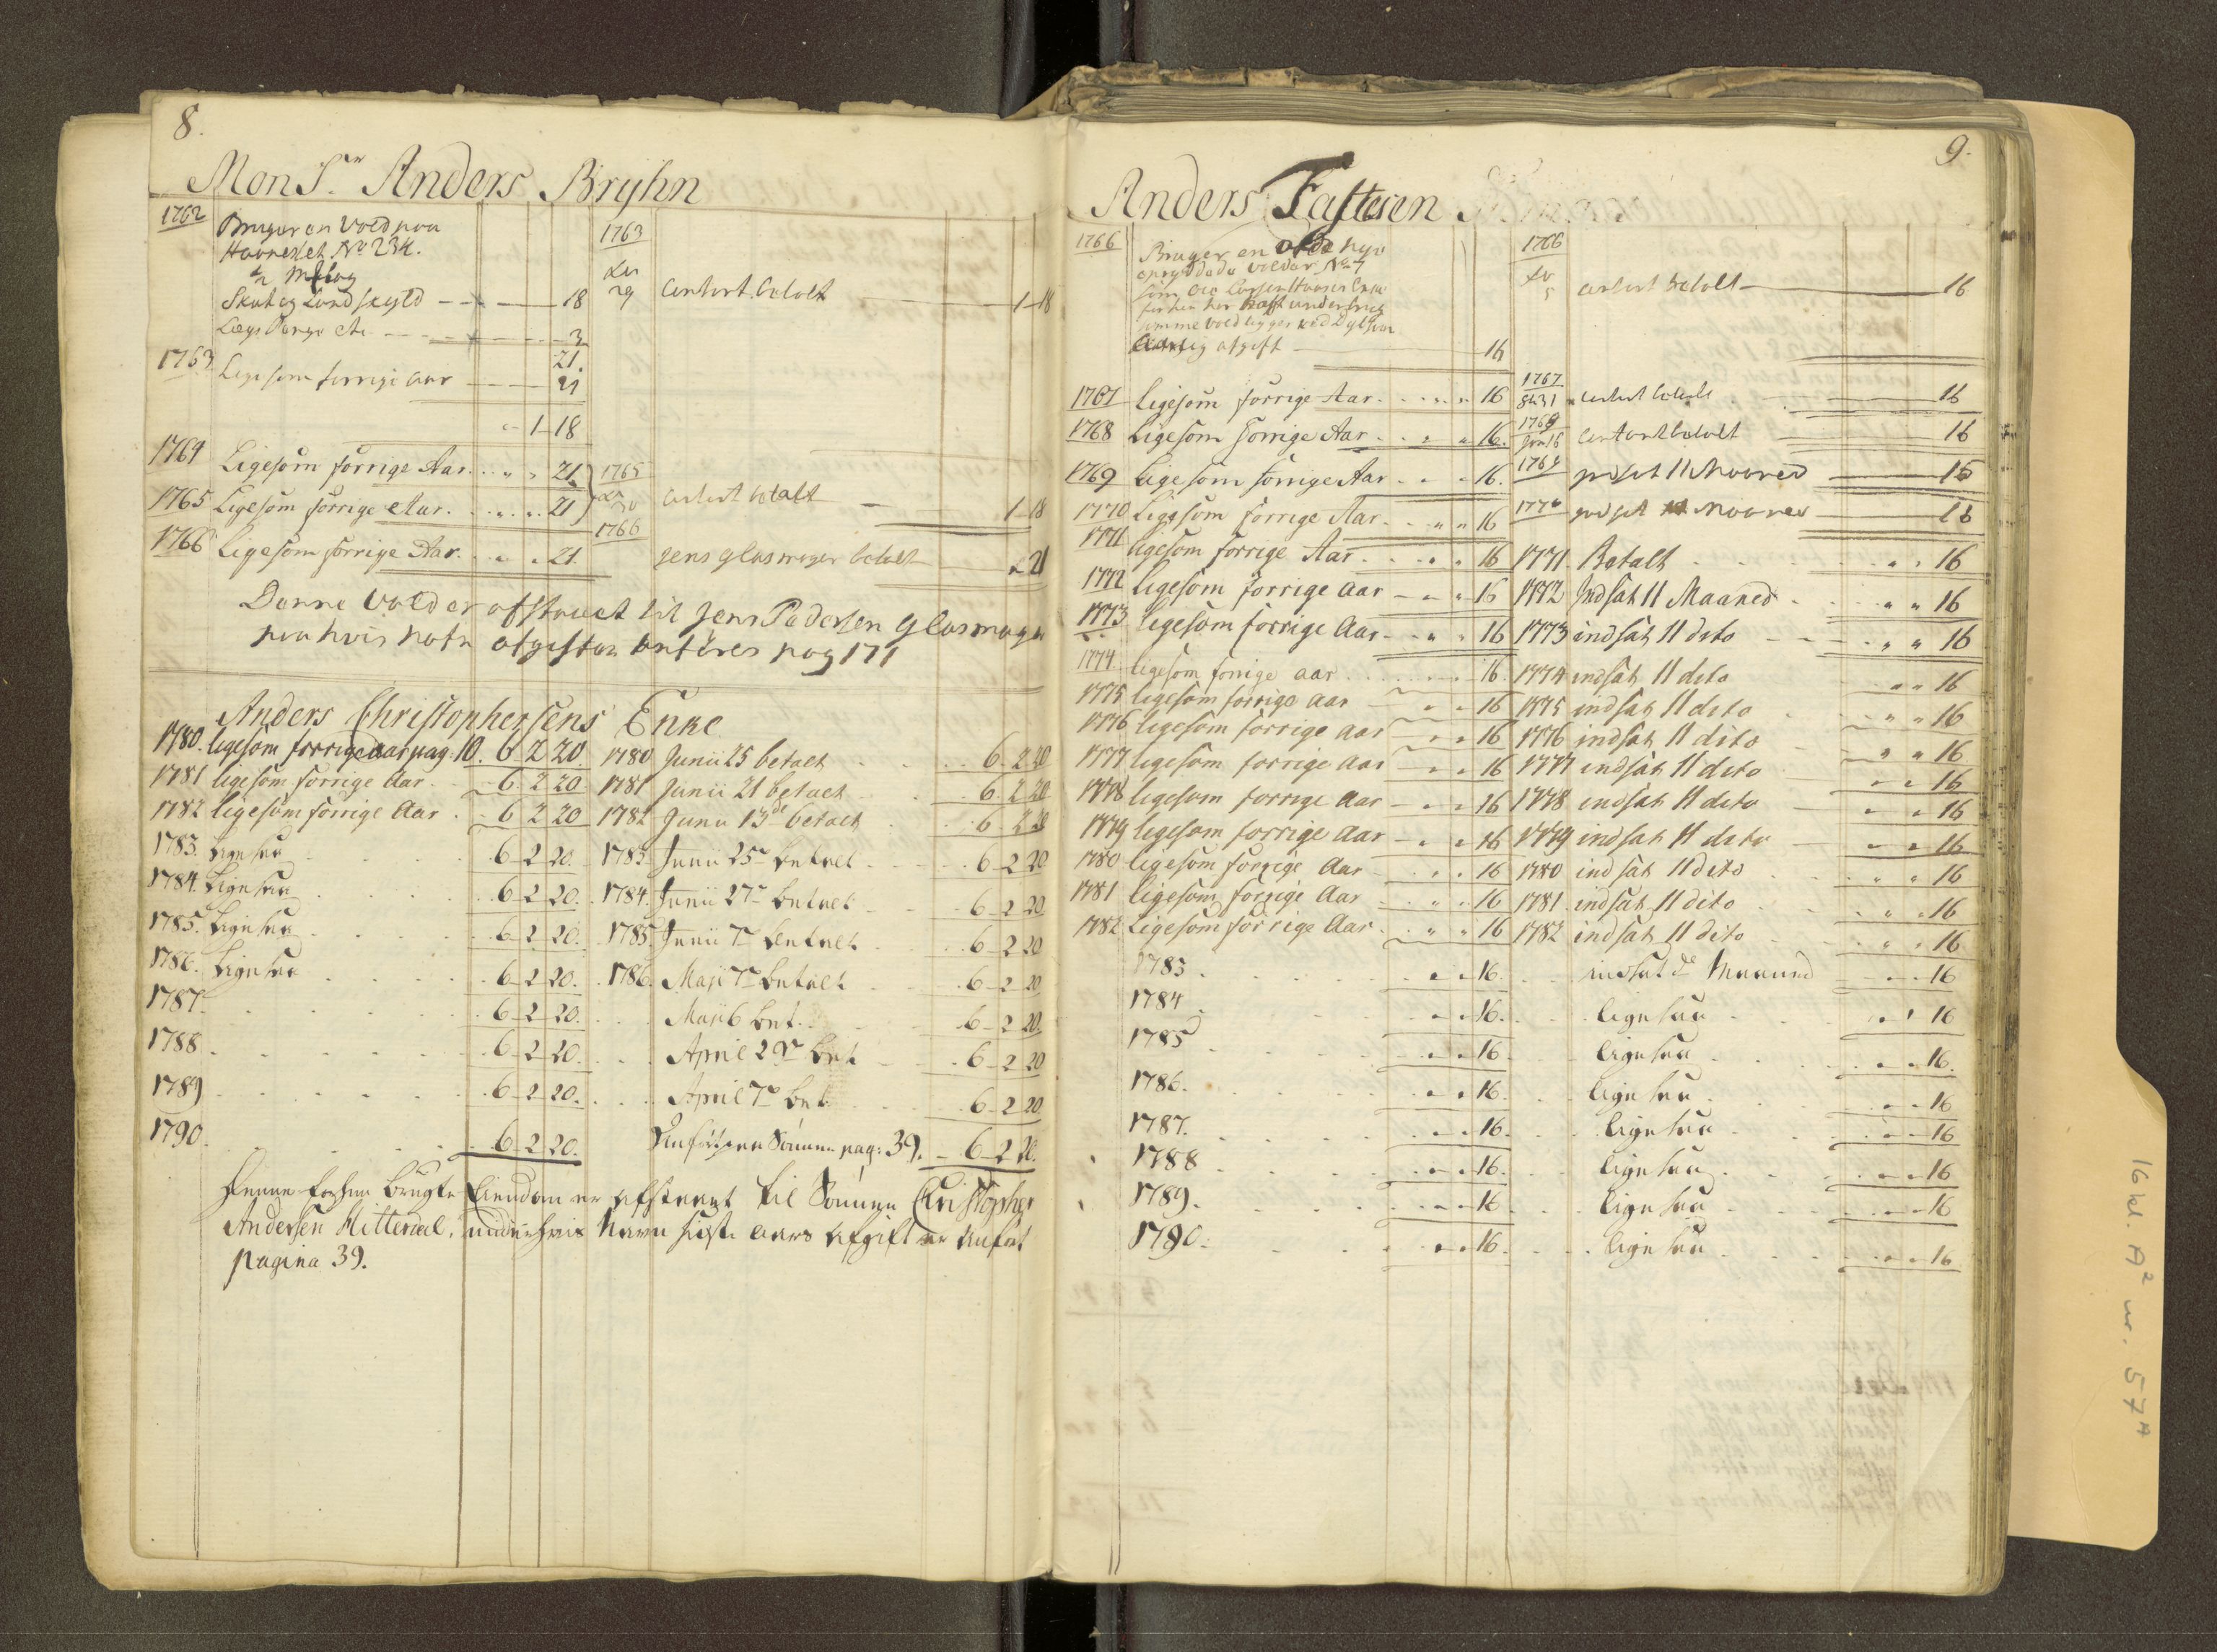 8.
Mons.r Anders Bryhn
1762 Bruger en Vold paa
Haarexlet No 234.
Skat og Landskyld — 18
Lægs Penge etc — 3
21.
1763 Lige som forrige aar — 21
1-18
1764 Ligesom forrige Aar. 21
1765 Ligesom forrige Aar. 21
1766 Ligesom forrige Aar. 21.
1763
29 contant betalt — 1-18
1765
30 contant betalt — 1-18
1766
Jens Glasmager betalt — 21
Denne Vold er afstaaet til Jens Pedersen Glasmager
paa hvis nafn afgiften anføres pag 171
Anders Christophersens Enke
1780. ligesom forrige aar pag. 10. 6 2 20. 1780 Junii 25 betalt 6 2 20
1781 ligesom forrige Aar. 6 2 20. 1781 Junii 21 betalt 6 2 20
1782 ligesom forrige Aar. 6 2 20 1782 Junii 13de betalt 6 2 20
1783. Ligesaa 6 2 20. 1783 Junii 25e betalt 6 2 20
1784. Ligesaa 6 2 20. 1784. Junii 27e betalt 6 2 20
1785. Ligesaa 6 2 20. 1785. Junii 7e betalt 6 2 20
1786. Ligesaa 6 2 20. 1786. Maji 7e betalt 6 2 20
1787. 6 2 20. Maji 6 bet. 6 2 20.
1788 6 2 20. April 29e bet 6 2 20
1789 6 2 20. April 7e bet. 6 2 20
1790. 6 2 20. Anført paa Sønnen pag: 39. 6 2 20.
Denne forhen brugte Eiendom er afstaaet til Sønnen Christopher
Andersen Hitterdal, under hvis Navn sidste aars Afgift er Anført
pagina 39.
9.
Anders Fastesen
1766 Bruger en nye
opryddede No 7
som Ole Larsen
forhen har haft under brug
samme Vold ligger ved
Aarlig afgift — 16
1766
5 contant betalt — 16
1767 Ligesom forrige Aar. 16 1767 8br 31 contant betalt 16
1768 Ligesom forrige Aar. 16. 1769 Jan 16 contant betalt 16
1769 Ligesom forrige Aar 16. 1769 indsat 11 Maaned 16
1770 Ligesom forrige Aar. 16 1770 indsat 11 Maaned 16
1771 ligesom forrige Aar. 16 1771. Betalt 16
1772 ligesom forrige aar 16 1772 Indsat 11 Maaned 16
1773 ligesom forrige Aar 16 1773 indsat 11 dito 16
1774 ligesom forrige aar 16. 1774 indsat 11 dito 16
1775 ligesom forrige aar 16 1775 indsat 11 dito 16
1776 ligesom forrige aar 16 1776 indsat 11 dito 16
1777 ligesom forrige aar 16 1777 indsat 11 dito 16
1778 ligesom forrige aar 16 1778 indsat 11 dito 16
1779 ligesom forrige aar 16 1779 indsat 11 dito 16
1780 ligesom forrige Aar 16 1780 indsat 11 dito 16
1781 ligesom forrige Aar 16 1781 indsat 11 dito 16
1782 Ligesom forrige Aar. 16 1782 indsat 11 dito 16
1783. 16. indsat Maaned 16
1784 16. ligesaa 16
1785 16 ligesaa 16.
1786. 16. ligesaa 16
1787. 16. ligesaa 16
1788 16. ligesaa 16
1789. 16 ligesaa 16
1790. 16. ligesaa 16
16 kl. A2 nr. 57A